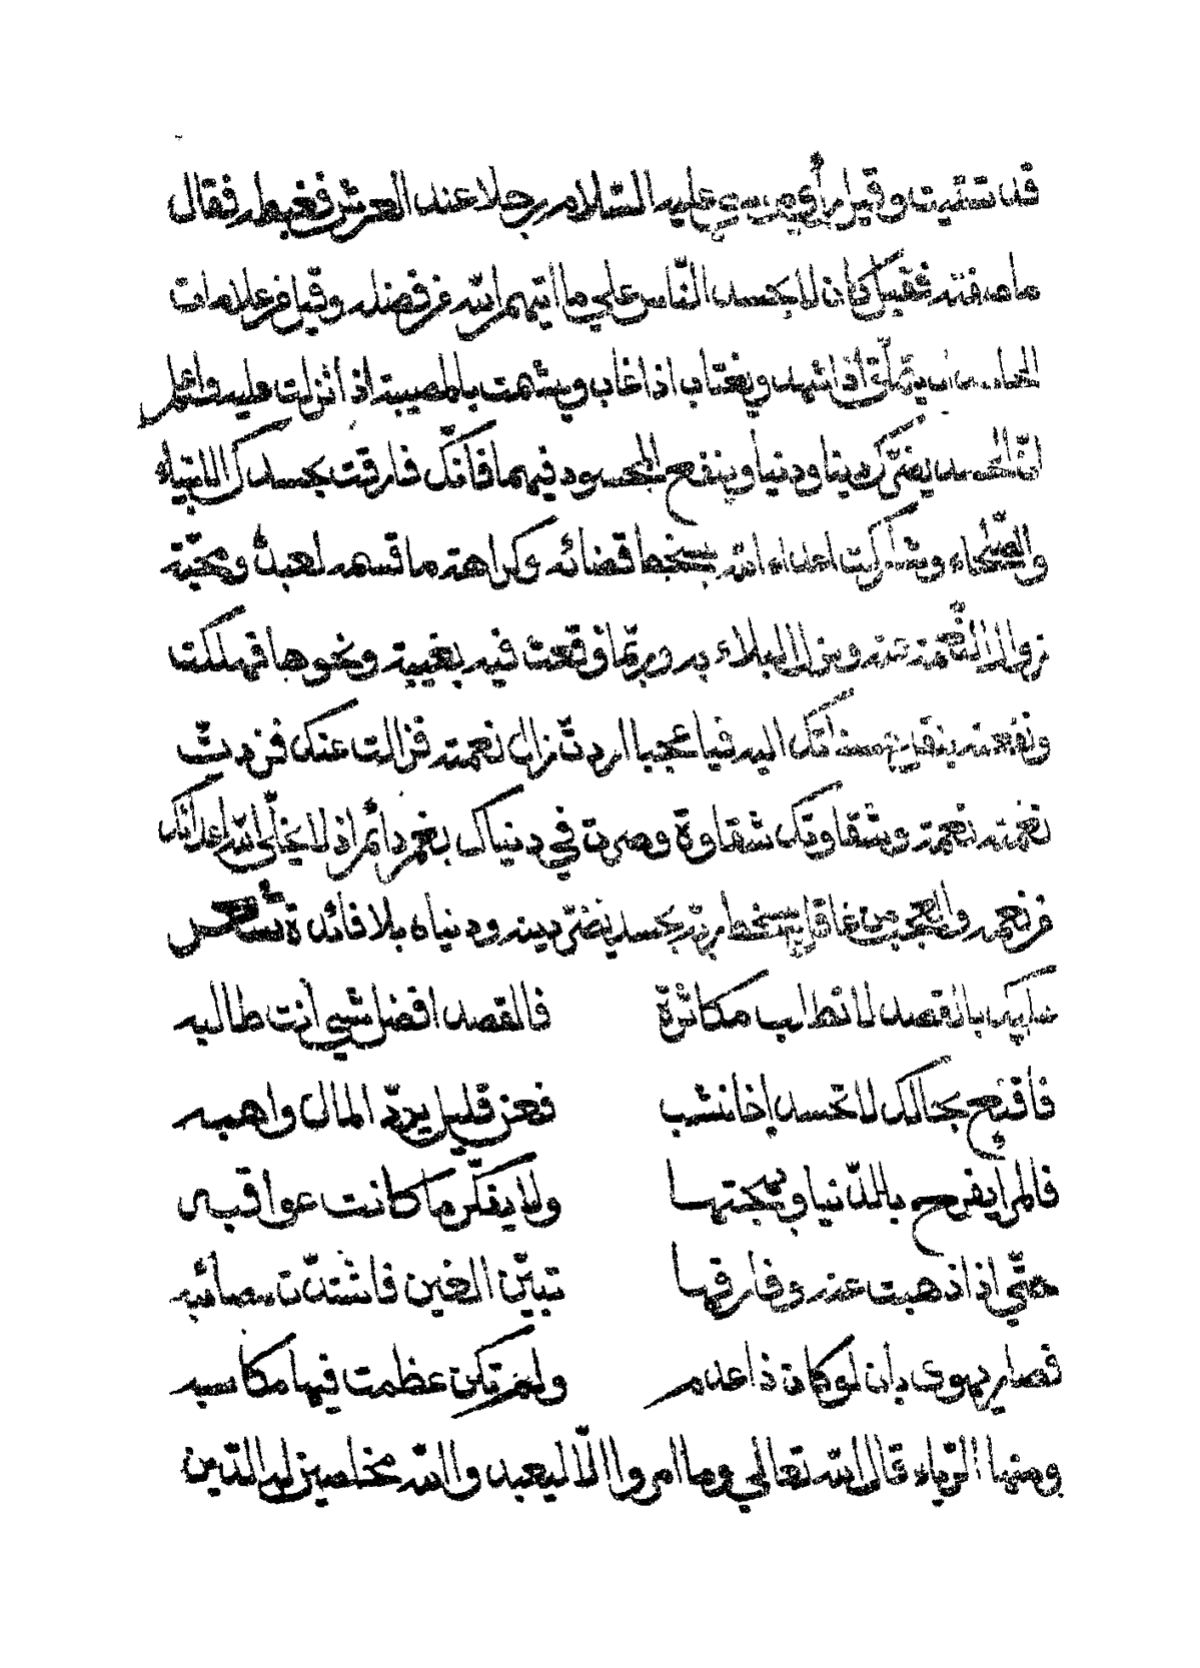 قد تمنيت وقيل رأى موسى عليه السلام رجلا عند العرش فغبطه فقال
ما صفته فقيل كان لا يحسد الناس على ما اتيهم الله من فضله وقيل من علامات
الحاسد ان يتملق اذا شهد ويغتاب اذا غاب ويشمت بالمصيبة اذا نزلت عليه واعلم
ان الحسد يضرك دينا ودنيا وينفع المحسود فيهما فانك فارقت بحسدك الانبياء
والصلحاء وشاركت اعداء الله بسخط قضائه وكراهة ما قسمه لعبده ومحبته
زوال النعمة عنه ونزول البلاء به وربما وقعت فيه بغيبة ونحوها فهلكت
ونفعته بنقل حسناتك اليه فيا عجبا اردت زوال نعمته فزالت عنك فزدت
نعمته نعمة وشقاوتك شقاوة وصرت في دنياك بغم دائم اذ لا يخلى الله اعدائك
من نعمه والعجب من عاقل يسخط ربه بحسد يضر دينه ودنياه بلا فائدة شعر
عليك بالقصد لا تطلب مكاثرة فالقصد افضل شيء انت طالبه
فاقنع بحالك لا تحسد اخا نشب فعن قليل يرد المال واهبه
فالمرأ يفرح بالدنيا وبهجتها ولا يفكر ما كانت عواقبه
حتى اذا ذهبت عنه وفارقها تبين الغبن فاشتدت مصائبه
فصار يهوى بان لو كان ذا عدم ولم تكن عظمت فيها مكاسبه
ومنها الرياء قال الله تعالى وما امروا الا ليعبدوا الله مخلصين له الدين